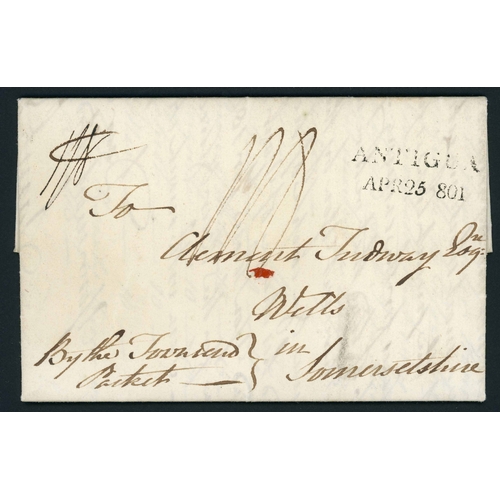 ANTIGUA
APR25 801
To
Clement Tudway Esqre
Wells
in
Somersetshire
By the Townsend
Packet